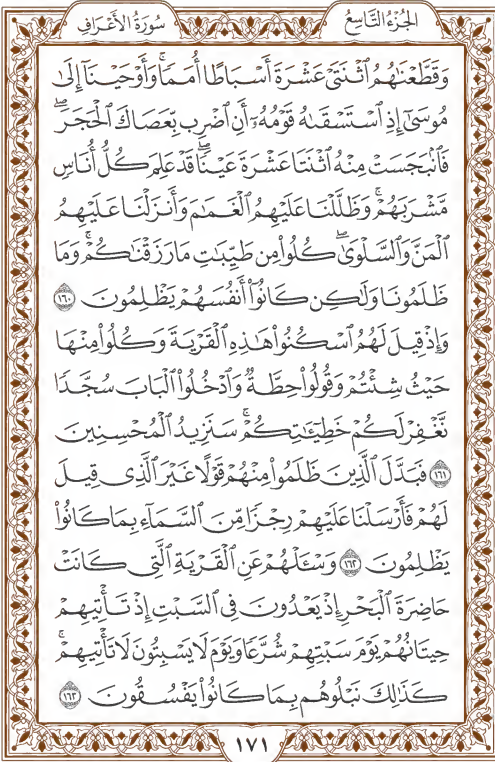 الجُزْءُ التَّاسِعُ
سُورَةُ الأَعْرَافِ
وَقَطَّعْنَٰهُمُ ٱثْنَتَىْ عَشْرَةَ أَسْبَاطًا أُمَمًا ۚ وَأَوْحَيْنَآ إِلَىٰ
مُوسَىٰٓ إِذِ ٱسْتَسْقَىٰهُ قَوْمُهُۥٓ أَنِ ٱضْرِب بِّعَصَاكَ ٱلْحَجَرَ ۖ
فَٱنۢبَجَسَتْ مِنْهُ ٱثْنَتَا عَشْرَةَ عَيْنًا ۖ قَدْ عَلِمَ كُلُّ أُنَاسٍ
مَّشْرَبَهُمْ ۚ وَظَلَّلْنَا عَلَيْهِمُ ٱلْغَمَٰمَ وَأَنزَلْنَا عَلَيْهِمُ
ٱلْمَنَّ وَٱلسَّلْوَىٰ ۖ كُلُوا۟ مِن طَيِّبَٰتِ مَا رَزَقْنَٰكُمْ ۚ وَمَا
ظَلَمُونَا وَلَٰكِن كَانُوٓا۟ أَنفُسَهُمْ يَظْلِمُونَ ١٦٠
وَإِذْ قِيلَ لَهُمُ ٱسْكُنُوا۟ هَٰذِهِ ٱلْقَرْيَةَ وَكُلُوا۟ مِنْهَا
حَيْثُ شِئْتُمْ وَقُولُوا۟ حِطَّةٌ وَٱدْخُلُوا۟ ٱلْبَابَ سُجَّدًا
نَّغْفِرْ لَكُمْ خَطِيٓـَٰٔتِكُمْ ۚ سَنَزِيدُ ٱلْمُحْسِنِينَ
١٦١ فَبَدَّلَ ٱلَّذِينَ ظَلَمُوا۟ مِنْهُمْ قَوْلًا غَيْرَ ٱلَّذِى قِيلَ
لَهُمْ فَأَرْسَلْنَا عَلَيْهِمْ رِجْزًا مِّنَ ٱلسَّمَآءِ بِمَا كَانُوا۟
يَظْلِمُونَ ١٦٢ وَسْـَٔلْهُمْ عَنِ ٱلْقَرْيَةِ ٱلَّتِى كَانَتْ
حَاضِرَةَ ٱلْبَحْرِ إِذْ يَعْدُونَ فِى ٱلسَّبْتِ إِذْ تَأْتِيهِمْ
حِيتَانُهُمْ يَوْمَ سَبْتِهِمْ شُرَّعًا وَيَوْمَ لَا يَسْبِتُونَ ۙ لَا تَأْتِيهِمْ ۚ
كَذَٰلِكَ نَبْلُوهُم بِمَا كَانُوا۟ يَفْسُقُونَ ١٦٣
١٧١